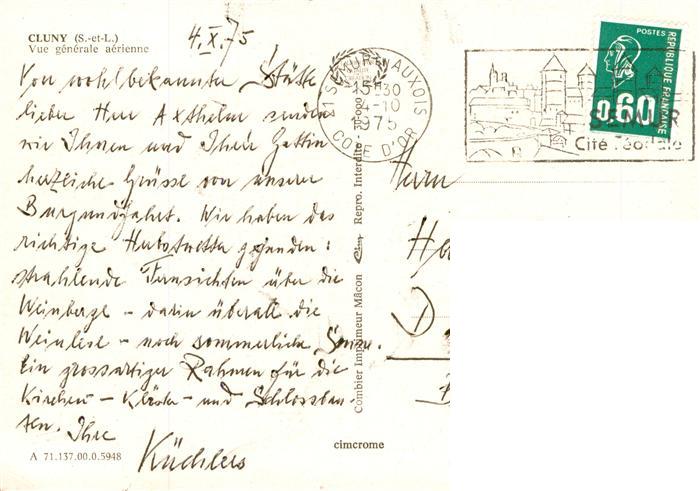 CLUNY (S.-et-L.)
Vue générale aérienne
4.X.75
Von wohlbekannter Stätte
lieber Herr Axthelm senden
wir Ihnen und Ihrer Gattin
herzliche Grüsse von unserer
Burgundfahrt. Wir haben das
richtige Herbstwetter gefunden:
strahlende Fernsichten über die
Weinberge – darin überall die
Weinlese – noch sommerliche Sonne.
Ein grossartiger Rahmen für die
Kirchen – Klöster – und Schlossbau-
ten. Ihre
Küchlers
A 71.137.00.0.5948
cimcrome
Combier Imprimeur Mâcon Cim Repro. Interdite
21 SEMUR-EN-AUXOIS
15H30
4-10
1975
COTE D'OR
POSTES
REPUBLIQUE FRANÇAISE
0.60
SEMUR
Cité Féodale
Herrn
D